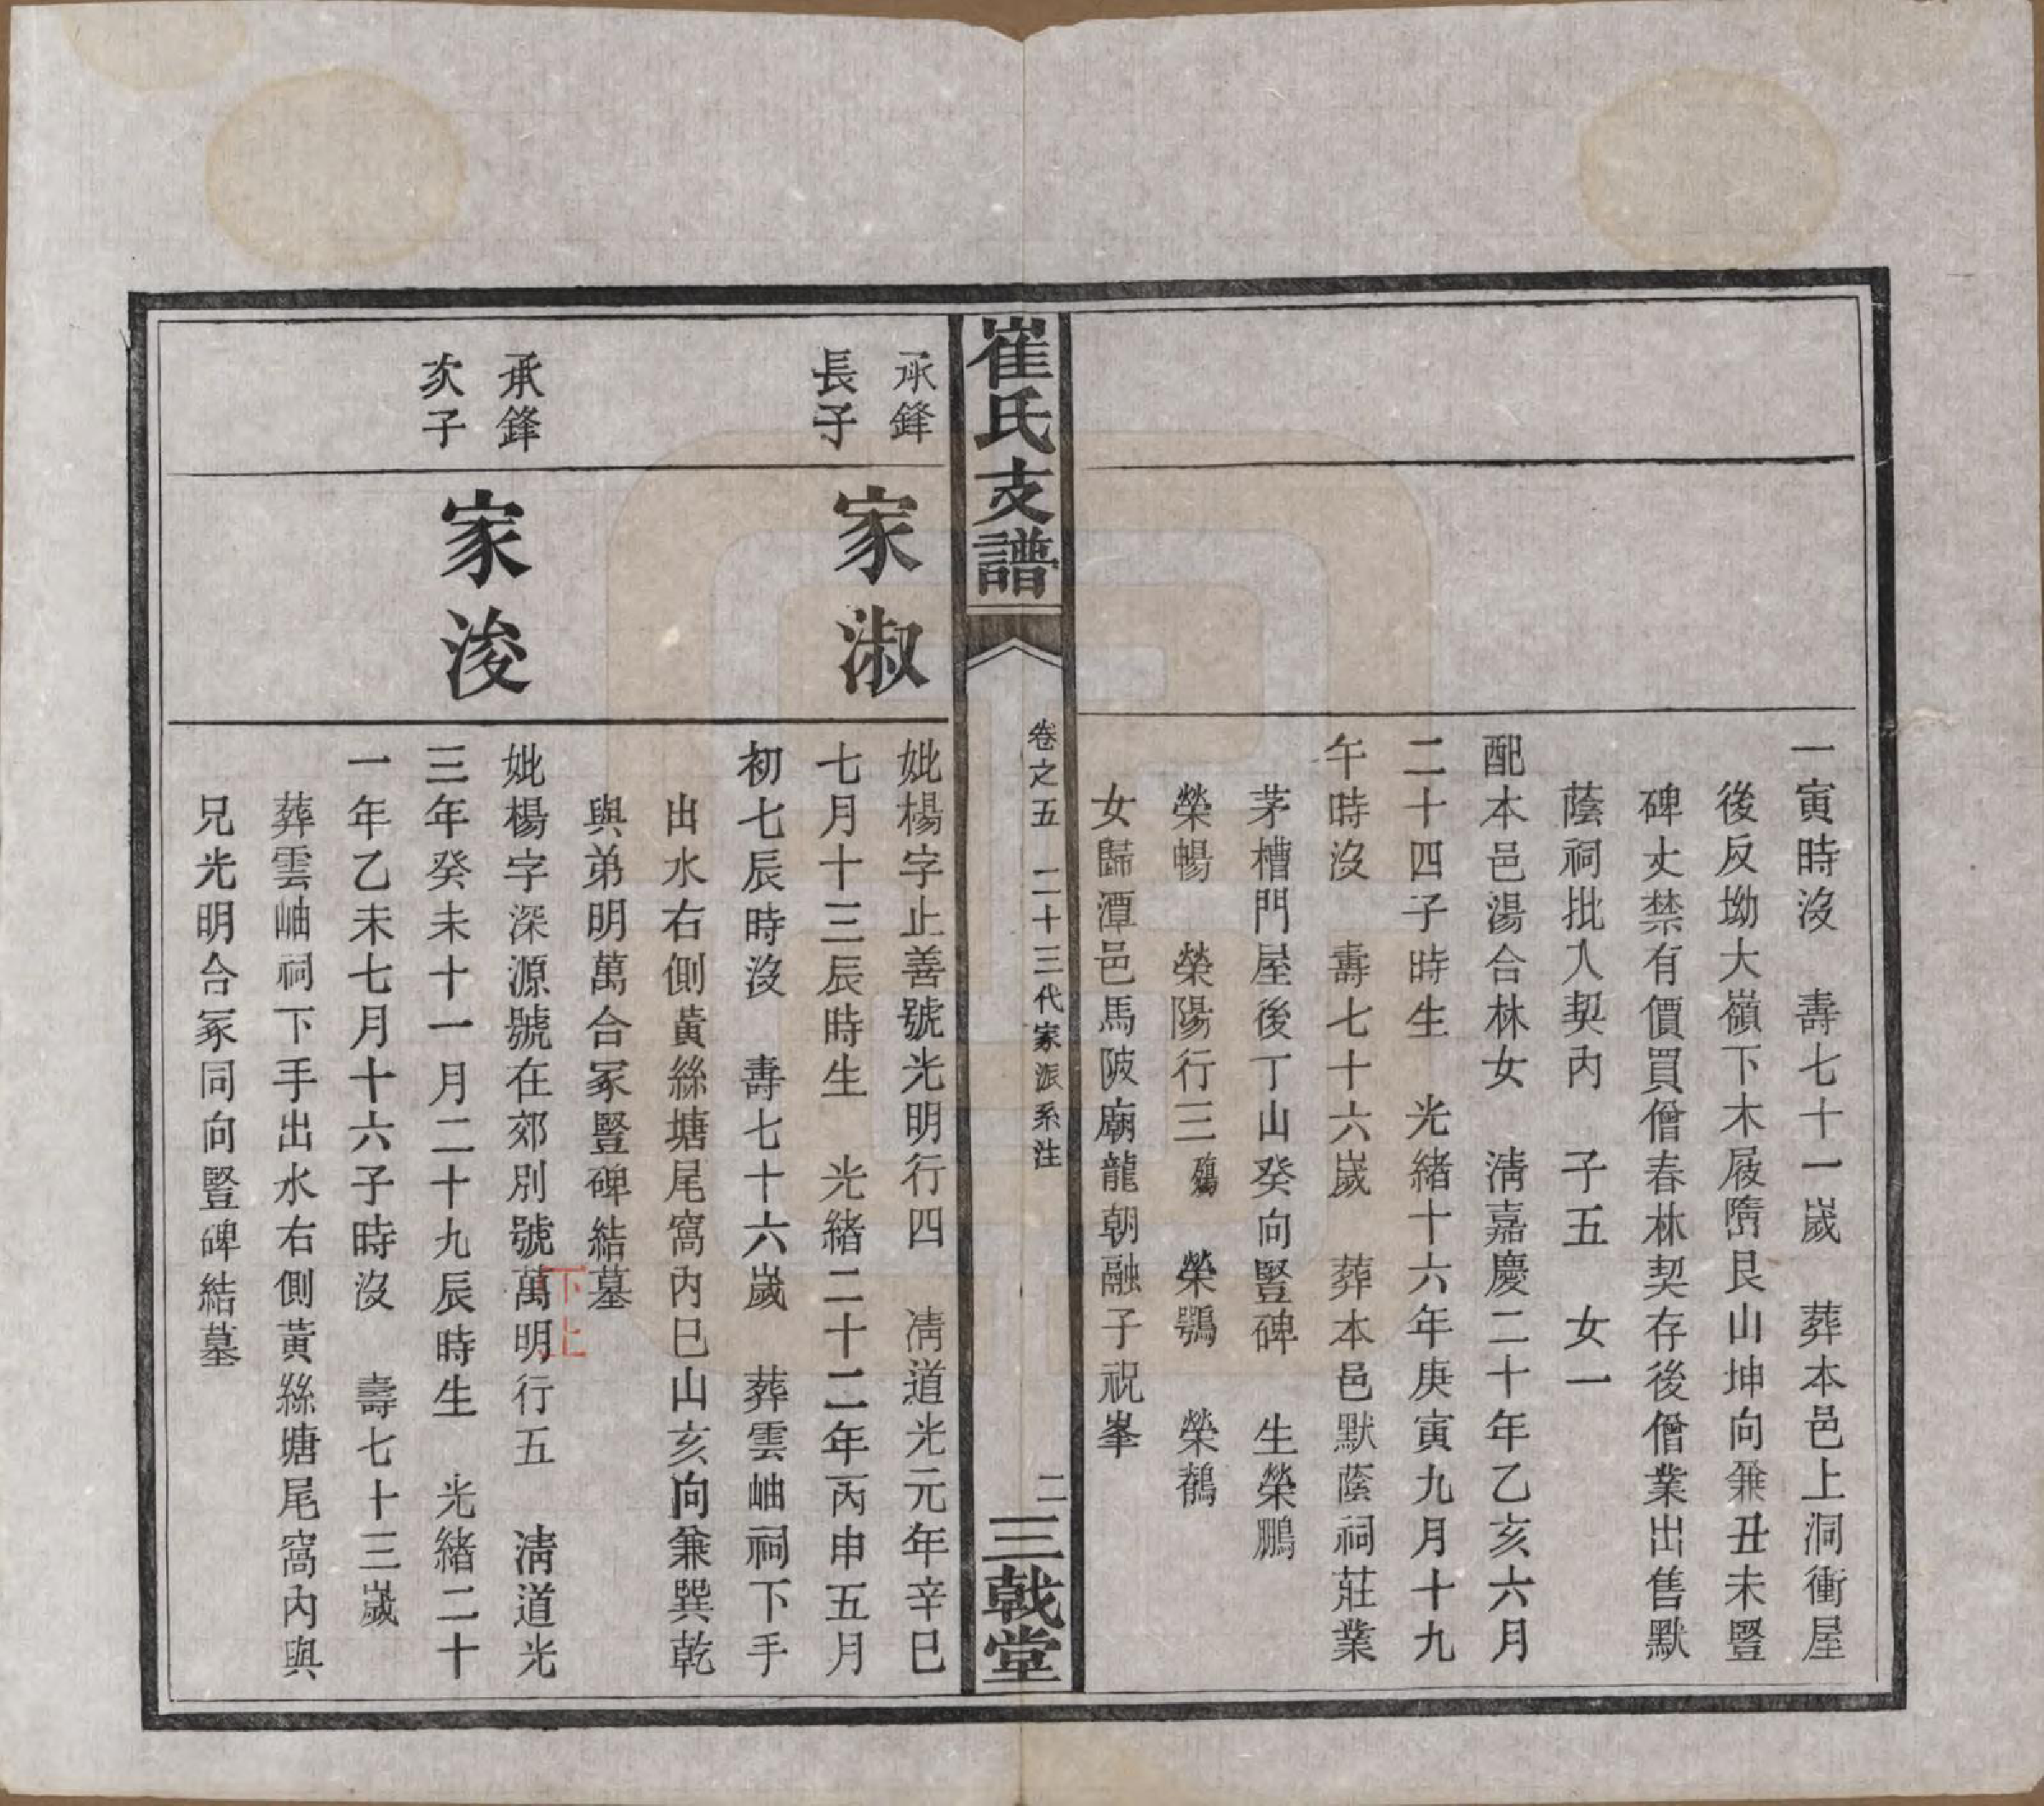 一寅時沒　壽七十一歲　葬本邑上洞衝屋
後反坳大嶺下木屐隋艮山坤向兼丑未豎
碑丈禁有價買僧春林契存後僧業出售默
蔭祠批入契內　子五　女一
配本邑湯合林女　淸嘉慶二十年乙亥六月
二十四子時生　光緒十六年庚寅九月十九
午時沒　壽七十六歲　葬本邑默蔭祠莊業
茅槽門屋後丁山癸向豎碑　生榮鵬
榮暢　榮陽行三殤　榮鶚　榮鶴
女歸潭邑馬陂廟龍朝融子祝峯
崔氏支譜
卷之五　二十三代家派系注
二
三戟堂
承鋒
長子
家淑
妣楊字止善號光明行四　淸道光元年辛巳
七月十三辰時生　光緒二十二年丙申五月
初七辰時沒　壽七十六歲　葬雲岫祠下手
出水右側黃絲塘尾窩內巳山亥向兼巽乾
與弟明萬合冢豎碑結墓
承鋒
次子
家浚
妣楊字深源號在郊別號萬明行五　淸道光
下上
三年癸未十一月二十九辰時生　光緒二十
一年乙未七月十六子時沒　壽七十三歲
葬雲岫祠下手出水右側黃絲塘尾窩內與
兄光明合冢同向豎碑結墓